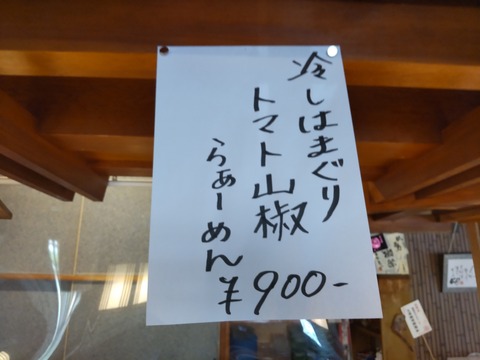 冷しはまぐり
トマト山椒
らぁーめん
¥900-